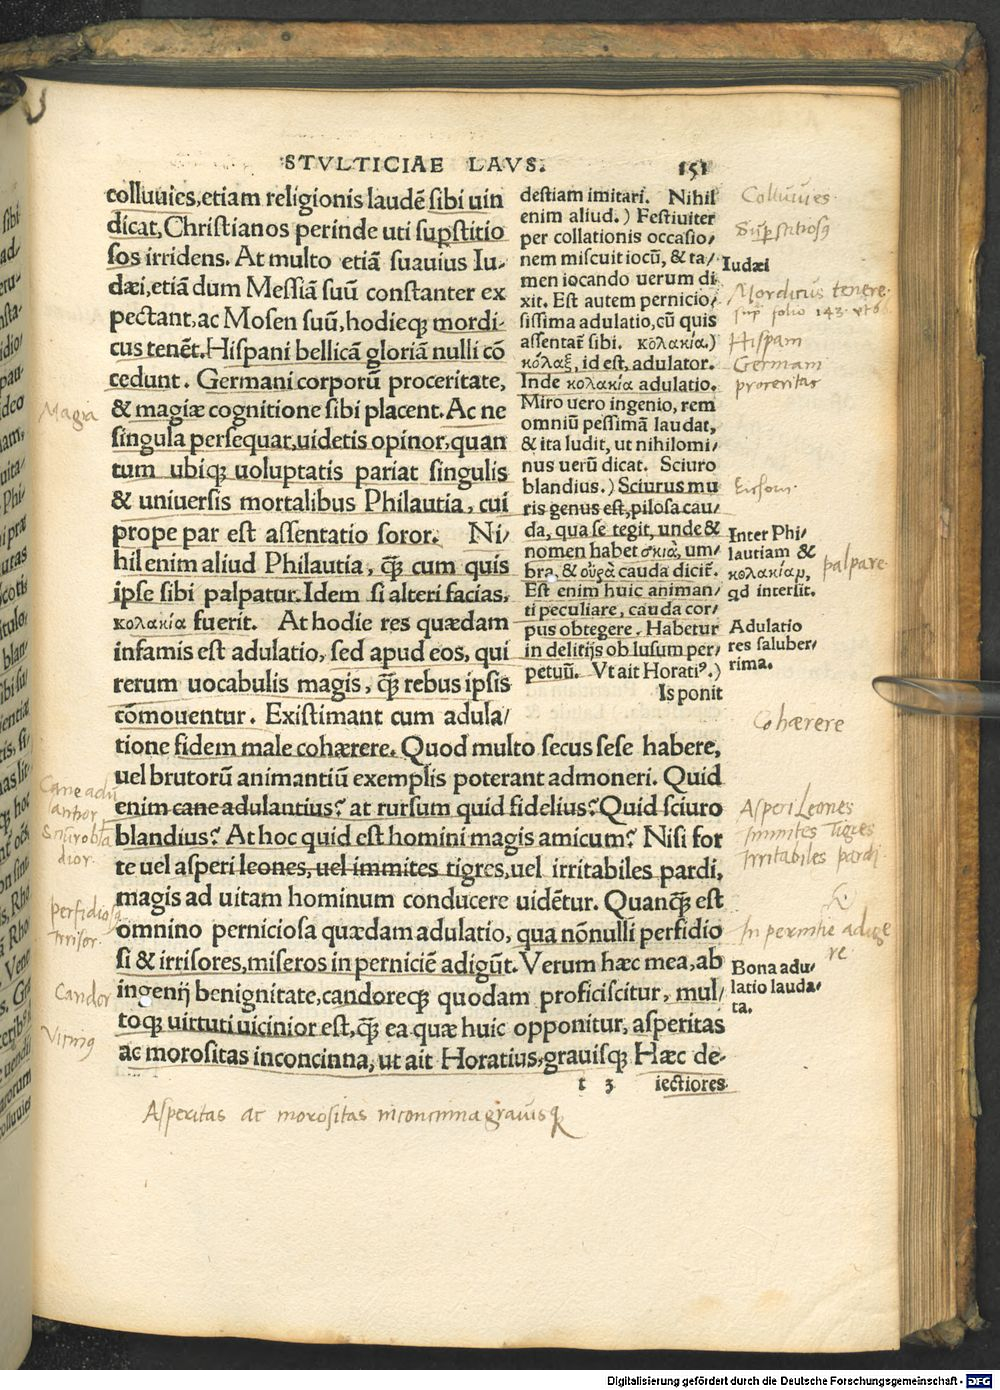 STVLTICIAE LAVS. 151
colluuies, etiam religionis laudē sibi uin
dicat, Christianos perinde uti suꝑstitio
sos irridens. At multo etiā suauius Iu-
dæi, etiā dum Messiā suū constanter ex
pectant, ac Mosen suū, hodieqꝫ mordi-
cus tenēt. Hispani bellicā gloriā nulli cō
cedunt. Germani corporū proceritate,
& magiæ cognitione sibi placent. Ac ne
singula persequar, uidetis opinor, quan
tum ubiqꝫ uoluptatis pariat singulis
& uniuersis mortalibus Philautia, cui
prope par est assentatio soror. Ni/
hil enim aliud Philautia, qꝫ̄ cum quis
ipse sibi palpatur. Idem si alteri facias,
κολακία fuerit. At hodie res quædam
infamis est adulatio, sed apud eos, qui
rerum uocabulis magis, qꝫ̄ rebus ipsis
cōmouentur. Existimant cum adula/
tione fidem male cohærere. Quod multo secus sese habere,
uel brutorū animantiū exemplis poterant admoneri. Quid
enim cane adulantius? at rursum quid fidelius? Quid sciuro
blandius? At hoc quid est homini magis amicum? Nisi for
te uel asperi leones, uel immites tigres, uel irritabiles pardi,
magis ad uitam hominum conducere uidētur. Quanqꝫ̄ est
omnino perniciosa quædam adulatio, qua nōnulli perfidio
si & irrisores, miseros in perniciē adigūt. Verum hæc mea, ab
ingenij benignitate, candoreqꝫ quodam proficiscitur, mul/
toqꝫ uirtuti uicinior est, qꝫ̄ ea quæ huic opponitur, asperitas
ac morositas inconcinna, ut ait Horatius, grauisqꝫ Hæc de-
t 3 iectiores
destiam imitari. Nihil
enim aliud.) Festiuiter
per collationis occasio/
nem miscuit iocū, & ta/
men iocando uerum di
xit. Est autem pernicio/
sissima adulatio, cū quis
assentat᷑ sibi. κολακία.)
κόλαξ, id est, adulator.
Inde κολακία adulatio.
Miro uero ingenio, rem
omniū pessimā laudat,
& ita ludit, ut nihilomi/
nus uerū dicat. Sciuro
blandius.) Sciurus mu
ris genus est, pilosa cau/
da, qua se tegit, unde &
nomen habet σκιὰ, um/
bra, & οὐρὰ cauda dicit᷑.
Est enim huic animan/
ti peculiare, cauda cor/
pus obtegere. Habetur
in delitijs ob lusum per/
petuū. Vt ait Horatiꝰ.)
Is ponit
Colluuies.
Suꝑstitiosꝰ
Iudæi
Mordicus tenere.
supᷓ folio 143.
Hispani
Germani
proceritas
Inter Phi/
lautiam &
κολακίαμ,
qd intersit.
palpare.
Adulatio
res saluber/
rima.
Cohærere
Asperi Leones
Immites Tigres
Irritabiles pardi
In pernitiē adige
re
Bona adu/
latio lauda/
ta.
Magia
Cane adu
perfidiosꝰ
Irrisor.
Candor
Asperitas ac morositas inconcinna grauisqꝫ
Digitalisierung gefördert durch die Deutsche Forschungsgemeinschaft - DFG